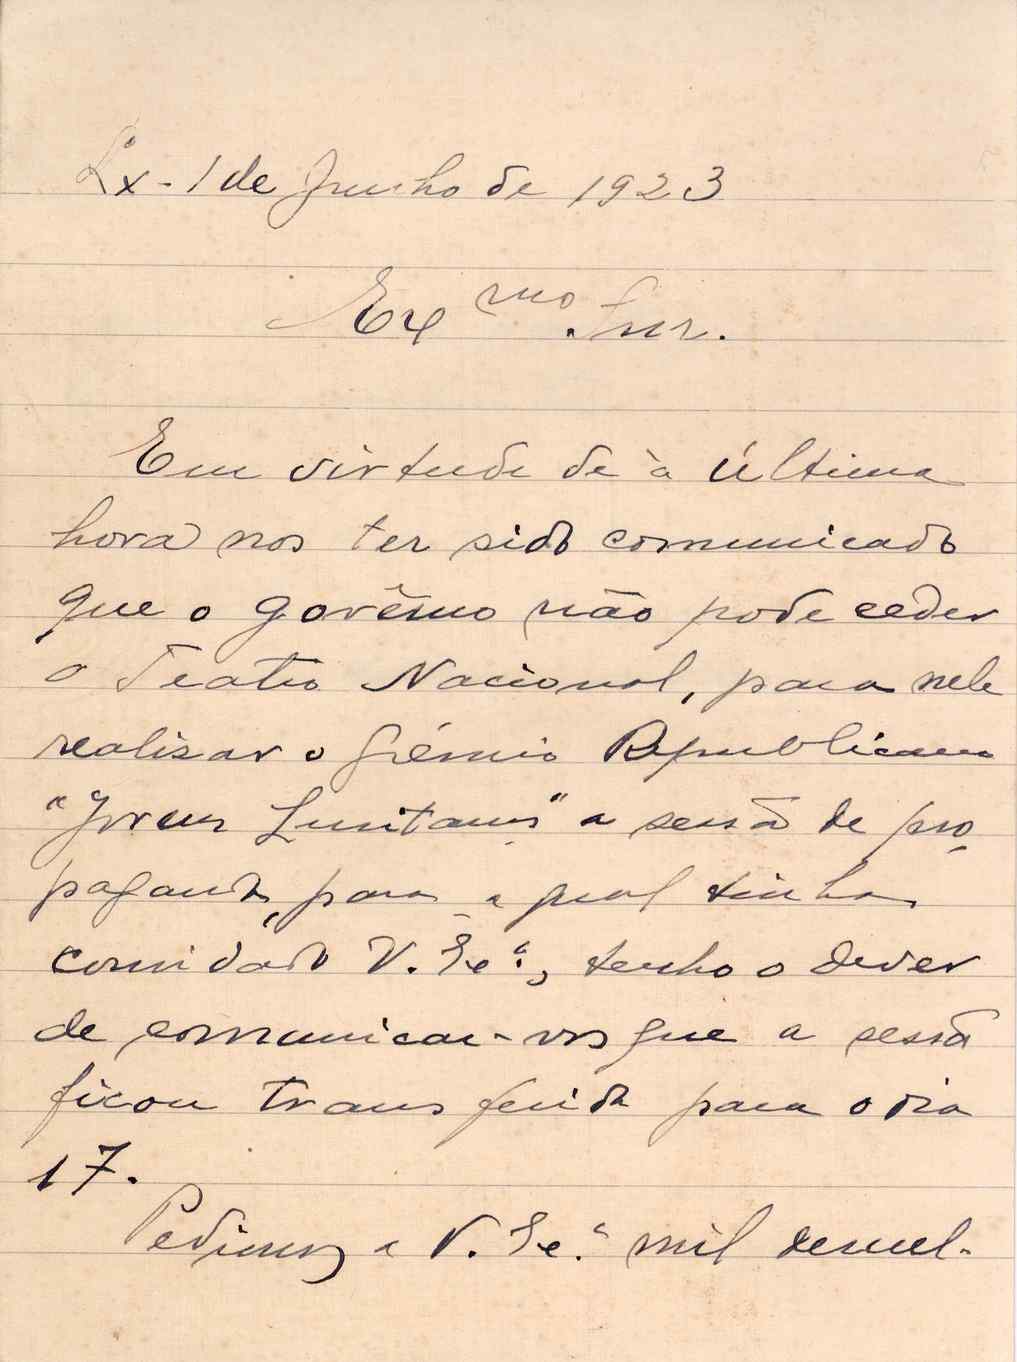 Lx - 1 de Junho de 1923
Exmo. Snr.
Em virtude de à última
hora nos ter sido comunicado
que o govêrno não pode ceder
o Teatro Nacional, para nele
realisar o Grémio Republicano
"Jovens Lusitanos" a sessão de pro-
paganda, para a qual tinha
convidado V. Exª., tenho o dever
de comunicar-vos que a sessão
ficou transferida para o dia
17.
Pedimos a V. Exª. mil descul-